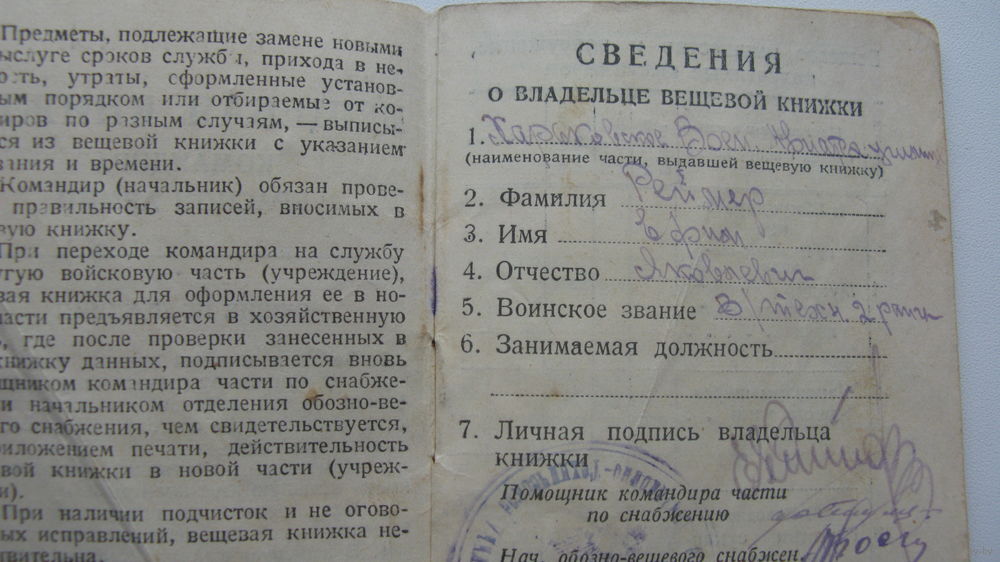 Предметы, подлежащие замене новыми
ыслуге сроков службы, прихода в не-
ость, утраты, оформленные установ-
ым порядком или отбираемые от ко-
иров по разным случаям, — выписы-
ся из вещевой книжки с указанием
ания и времени.
Командир (начальник) обязан прове-
правильность записей, вносимых в
вую книжку.
При переходе командира на службу
угую войсковую часть (учреждение),
вая книжка для оформления ее в но-
части предъявляется в хозяйственную
, где после проверки занесенных в
книжку данных, подписывается вновь
щником командира части по снабже-
и начальником отделения обозно-ве-
го снабжения, чем свидетельствуется,
иложением печати, действительность
вой книжки в новой части (учреж-
и).
При наличии подчисток и не огово-
ых исправлений, вещевая книжка не-
твительна.
СВЕДЕНИЯ
О ВЛАДЕЛЬЦЕ ВЕЩЕВОЙ КНИЖКИ
1. Харьковское Воен Авиац училищ
(наименование части, выдавшей вещевую книжку)
2. Фамилия Реймер
3. Имя Ефим
4. Отчество Яковлевич
5. Воинское звание В/техн. 2 ранга
6. Занимаемая должность
7. Личная подпись владельца
книжки
Помощник командира части
по снабжению
Нач. обозно-вещевого снабжен.